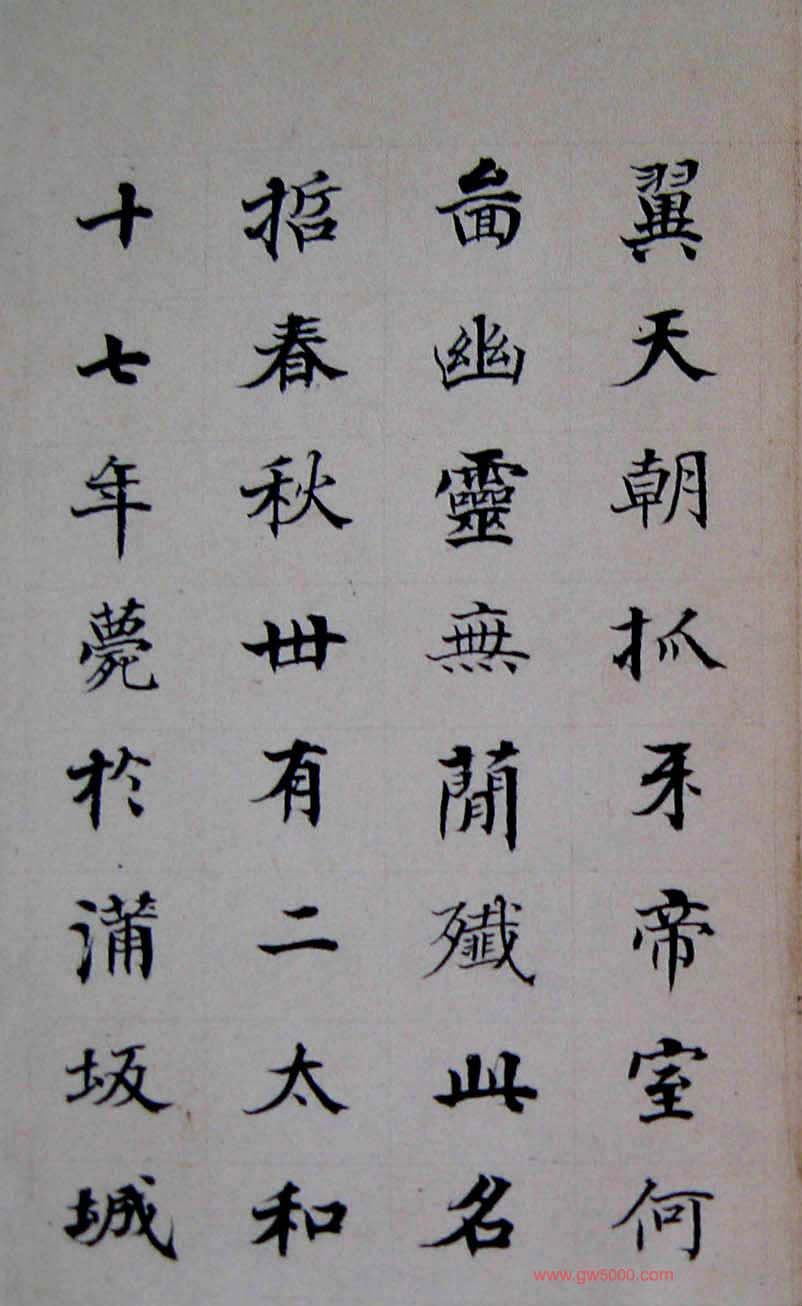 翼天朝抓牙帝室何
啚幽靈無蕳殲此名
哲春秋卅有二太和
十七年薨於蒲坂城
www.gw5000.com